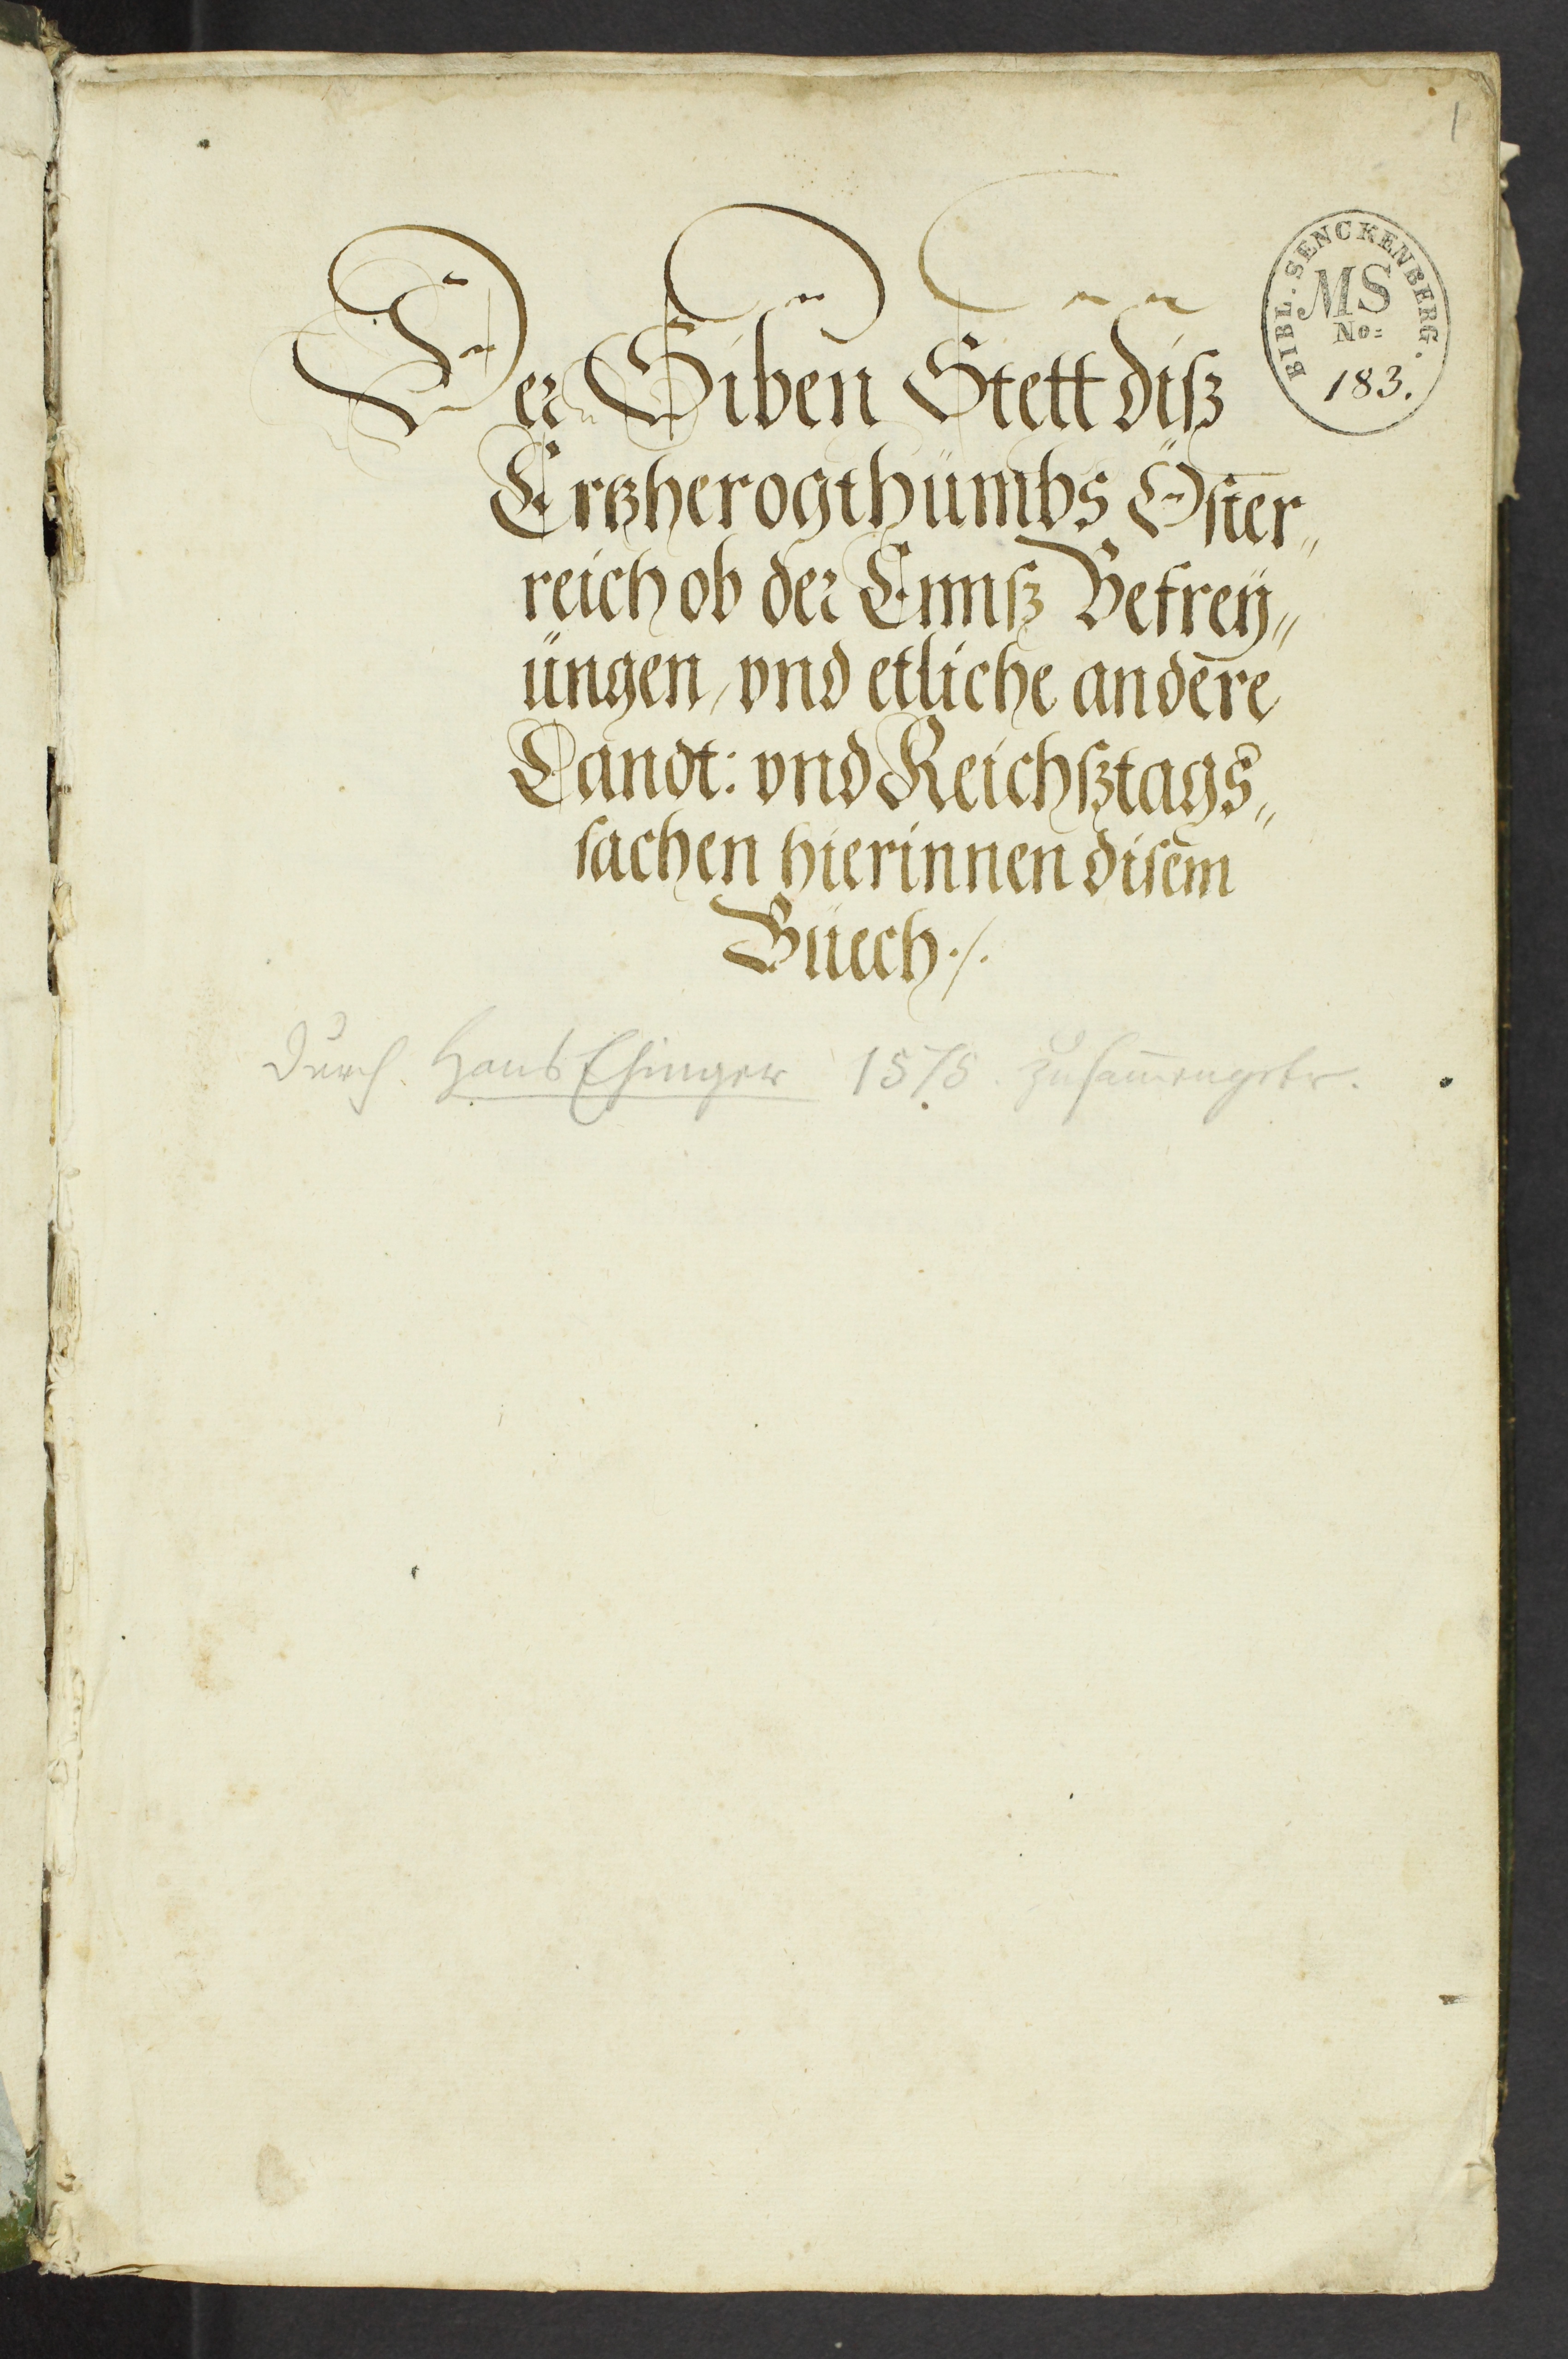 1
BIBL. SENCKENBERG.
MS
No:
183.
Der Siben Stett diß
Ertzherogthümbs Öster„
reich ob der Ennß Befrey„
üngen, vnd etliche andere
Landt: vnd Reichßtags„
sachen hierinnen disem
Büech ./.
Durch Hans Ehinger 1575. zusam̄engetr.